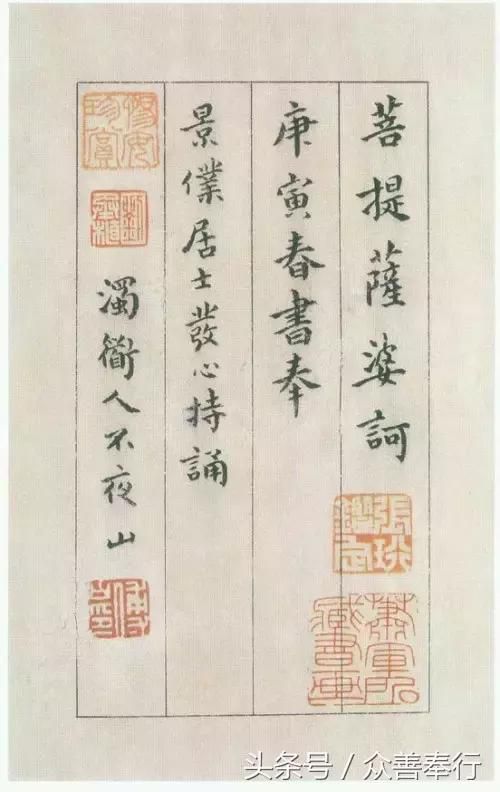 菩提薩婆訶
庚寅春書奉
景僕居士發心持誦
濁衜人不夜山
头条号 / 众善奉行